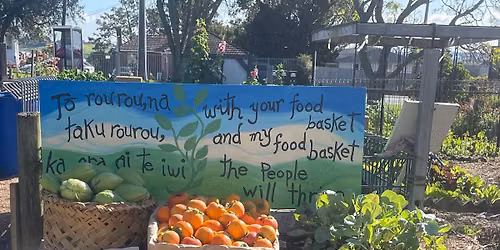 Tō rourou, na
taku rourou,
ka ai te iwi
with your food
basket
and my food
basket
the People
will